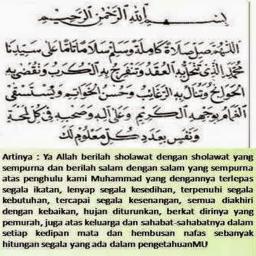 بِسْــــمِ اللهِ الرَّحْمٰنِ الرَّحِيْمِ
اَللّٰهُمَّ صَلِّ صَلَاةً كَامِلَةً وَسَلِّمْ سَلَامًا تَامًّا عَلَى سَيِّدِنَا
مُحَمَّدٍ الَّذِيْ تَنْحَلُّ بِهِ الْعُقَدُ وَتَنْفَرِجُ بِهِ الْكُرَبُ وَتُقْضَى بِهِ
الْحَوَائِجُ وَتُنَالُ بِهِ الرَّغَائِبُ وَحُسْنُ الْخَوَاتِمِ وَيُسْتَسْقَى
الْغَمَامُ بِوَجْهِهِ الْكَرِيْمِ وَعَلَى اٰلِهِ وَصَحْبِهِ فِيْ كُلِّ لَمْحَةٍ
وَنَفَسٍ بِعَدَدِ كُلِّ مَعْلُوْمٍ لَكَ
Artinya : Ya Allah berilah sholawat dengan sholawat yang
sempurna dan berilah salam dengan salam yang sempurna
atas penghulu kami Muhammad yang dengannya terlepas
segala ikatan, lenyap segala kesedihan, terpenuhi segala
kebutuhan, tercapai segala kesenangan, semua diakhiri
dengan kebaikan, hujan diturunkan, berkat dirinya yang
pemurah, juga atas keluarga dan sahabat-sahabatnya dalam
setiap kedipan mata dan hembusan nafas sebanyak
hitungan segala yang ada dalam pengetahuanMU